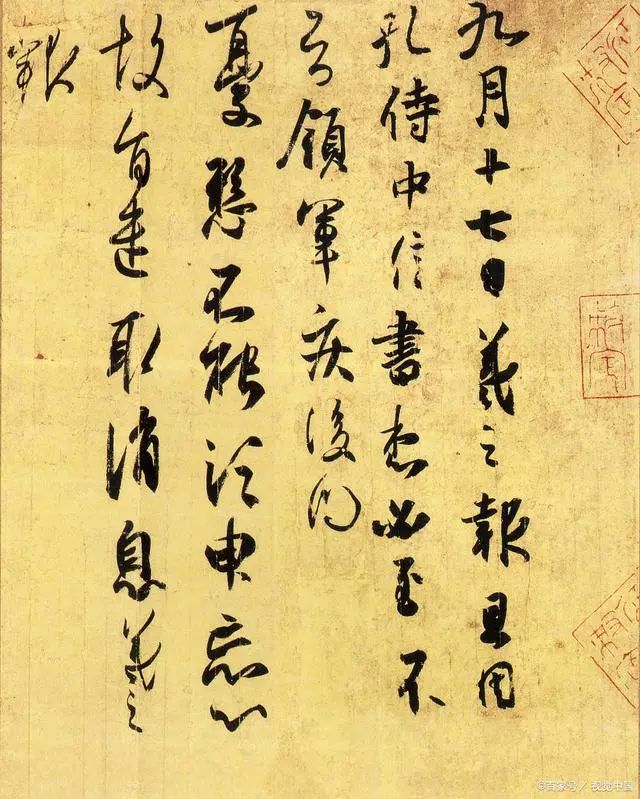 九月十七日羲之報且因
孔侍中信書想必至不
知領軍疾後問
憂懸不能須臾忘心
故旨遣取消息羲之
報
©百家号/视觉中国